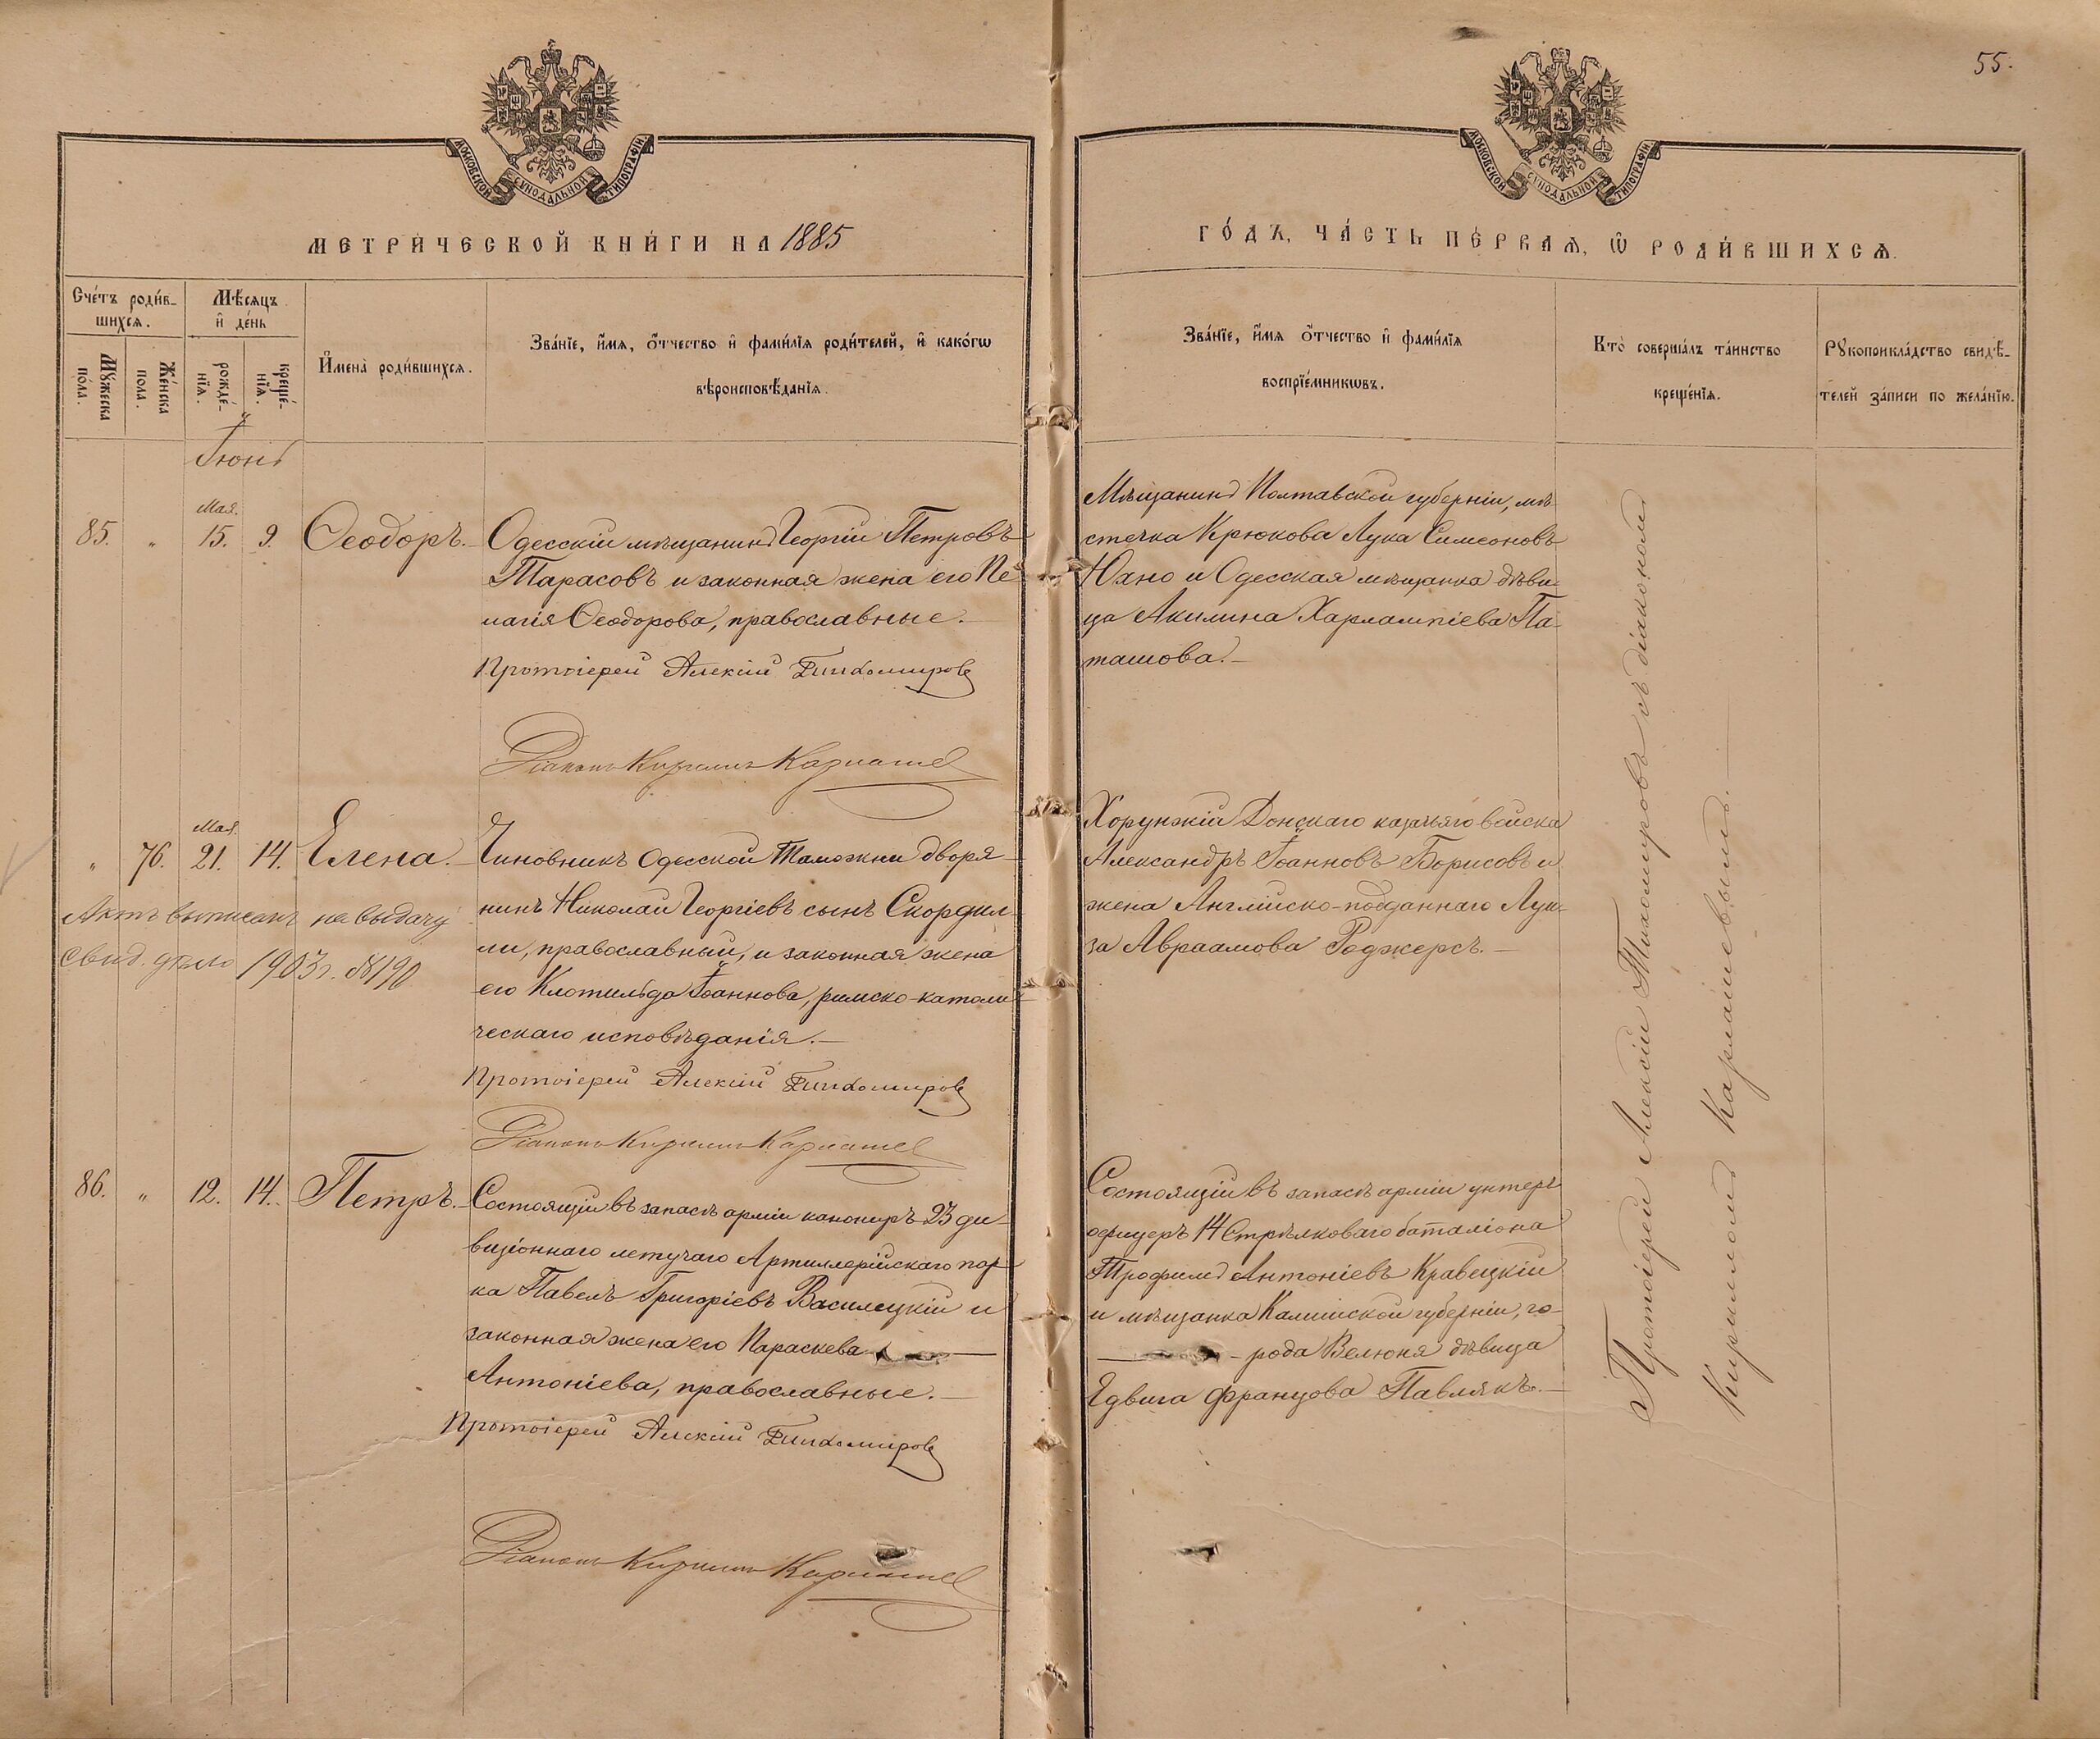 55.
МОСКОВСКОЙ СѴНОДАЛЬНОЙ ТИПОГРАФІИ
МОСКОВСКОЙ СѴНОДАЛЬНОЙ ТИПОГРАФІИ
МЕТРИ́ЧЕСКОЙ КНИ́ГИ НА 1885
ГО́ДЪ, ЧА́СТЬ ПЕ́РВАѦ, Ѡ РОДИ́ВШИХСѦ.
Сче́тъ роди́в-
шихсѧ.
Мꙋ́жеска
по́ла.
Же́нска
пола.
Мѣ́сѧцъ
и҆ де́нь
рожде́-
нїѧ.
креще́-
нїѧ.
И҆мена̀ роди́вшихсѧ.
Зва́нїе, и҆́мѧ, ѻ҆́тчество и҆ фами́лїѧ роди́телей, и҆ како́гѡ
вѣроисповѣ́данїѧ.
Зва́нїе, и҆́мѧ ѻ҆́тчество и҆ фами́лїѧ
воспрїе́мникѡвъ.
Кто̀ соверша́лъ та́инство
креще́нїѧ.
Рꙋкоприкла́дство свидѣ́-
телей за́писи по жела́нїю.
Іюнь
Мая.
85. „ 15. 9. Ѳеодоръ.
Одесскій мѣщанинъ Георгій Петровъ
Тарасовъ и законная жена его Пе-
лагія Ѳеодорова, православные.
Протоіерей Алексій Тихомировъ
Діаконъ Кириллъ Карпашев
Мѣщанинъ Полтавской губерніи, мѣ-
стечка Крюкова Лука Симеоновъ
Юхно и Одесская мѣщанка дѣви-
ца Акилина Харлампіева Па-
ташова.
Мая.
„ 76. 21. 14. Елена.
Актъ выписанъ на выдачу
свид. дѣло 1903 г. №190
Чиновникъ Одесской Таможни дворя-
нинъ Николай Георгіевъ сынъ Скордил-
ли, православный, и законная жена
его Клотильда Іоаннова, римско-католи-
ческаго исповѣданія.
Протоіерей Алексій Тихомировъ
Діаконъ Кириллъ Карпашев
Хорунжій Донскаго казачьяго войска
Александръ Іоанновъ Борисовъ и
жена Англійско-подданнаго Луи-
за Авраамова Роджерсъ.
86. „ 12. 14. Петръ.
Состоящій въ запасѣ арміи канониръ 23 ди-
визіоннаго летучаго Артиллерійскаго пар-
ка Павелъ Григоріевъ Василецкій и
законная жена его Параскева
Антоніева, православные.
Протоіерей Алексій Тихомировъ
Діаконъ Кириллъ Карпашев
Состоящій въ запасѣ арміи унтеръ
офицеръ 14 Стрѣлковаго баталіона
Трофимъ Антоніевъ Кравецкій
и мѣщанка Калишской губерніи, го-
рода Велюня дѣвица
Ядвига Францова Павлякъ.
Протоіерей Алексій Тихомировъ съ діакономъ
Кирилломъ Карпашевымъ.